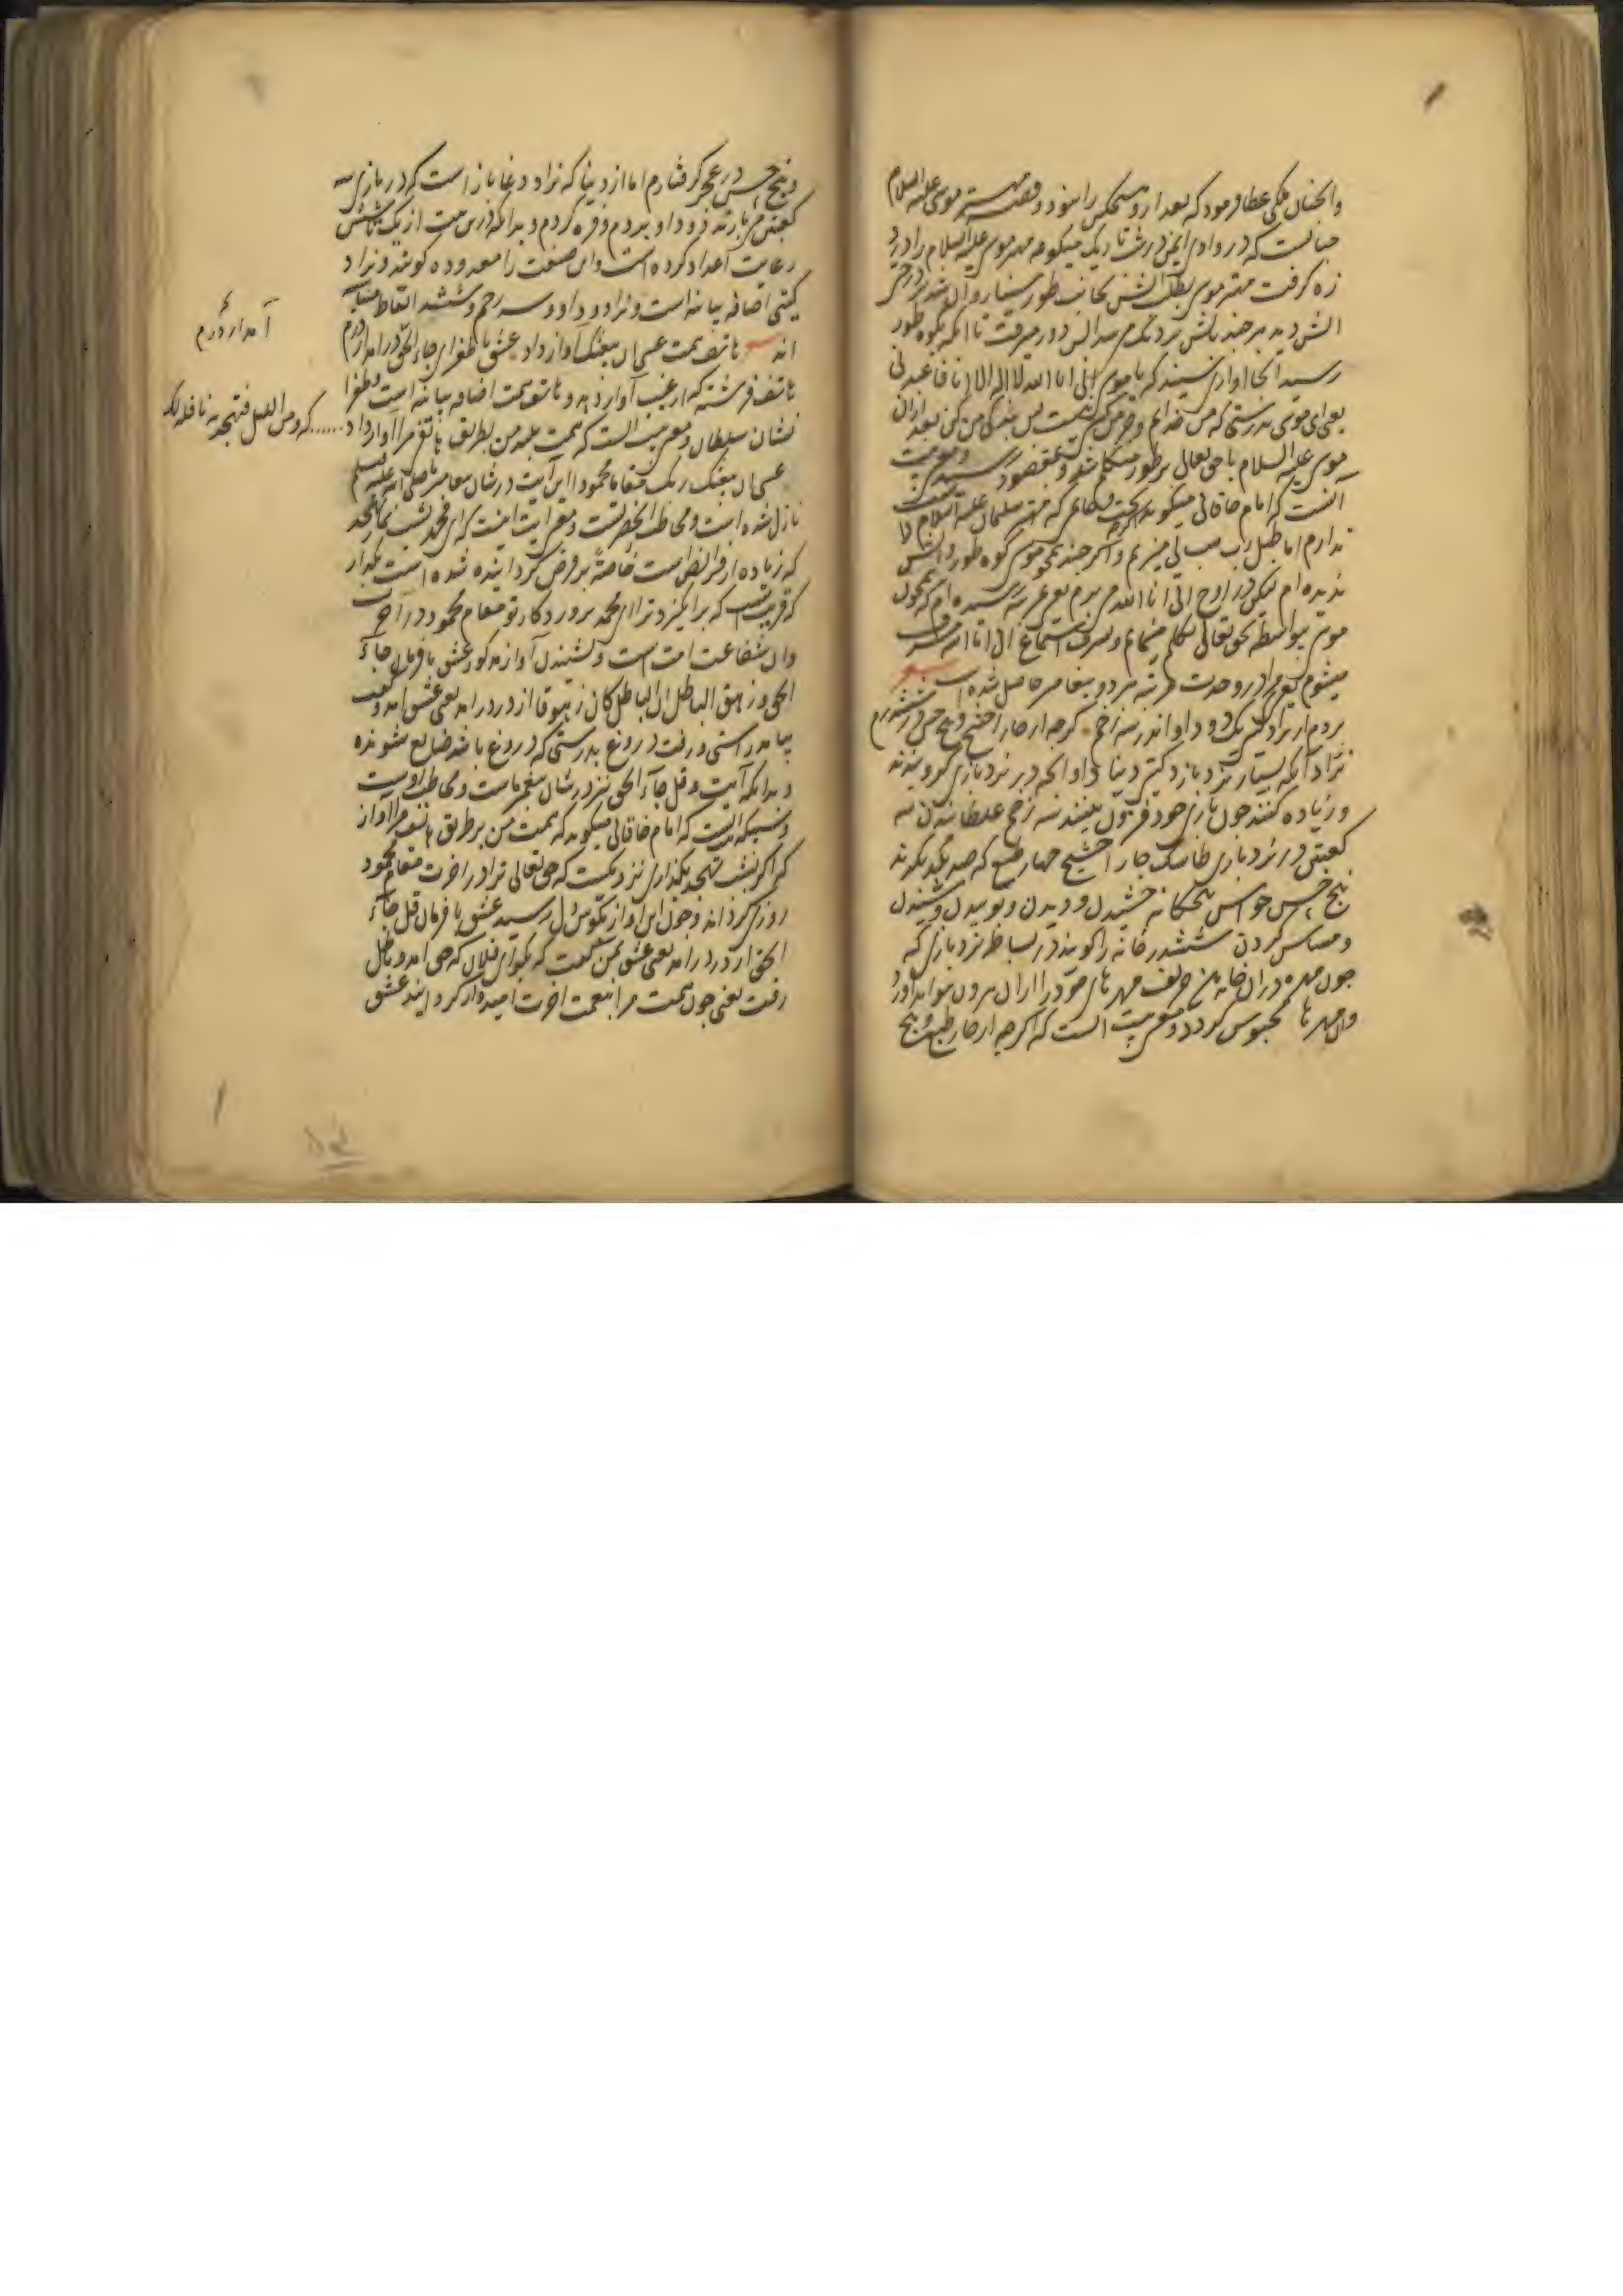 والحنان ملکی عطا فرمود که بعد از و هیچکس را نبود و قصه مهتر موسی علیه السلام
که در وادی ایمن در شب تاریک مهتر موسی علیه السلام را درد
زه گرفت مهتر موسی بطلب آتش بجانب طور سینا روان شد بر درختی
آتش دید هر چند پیش میرفت تا آنکه بکوه طور
رسید آنجا آوازی شنید که یا موسی انی انا الله لا اله الا انا فاعبدنی
یعنی ای موسی بدرستی که من خدایم پس بندگی من کن بعد ازان
موسی علیه السلام با حق تعالی بر طور متکلم شد و بمقصود رسید و معنی بیت
آنست که امام خاقانی میگوید که مهتر سلیمان علیه السلام
ندارم اما طبل میزنم و اگر چند همچو موسی کوه طور و آتش
ندیده ام لیکن در اوج انی انا الله می پرم یعنی بمرتبه رسیده ام که همچون
موسی بیواسطه بحق تعالی تکلم مینمایم و بشرف استماع انی انا الله مشرف
میشوم یعنی مرا در وحدت مرتبه هر دو پیغامبر حاصل شده است
بردم از نراد گیتی یک دو داو اندر سه زخم گرچه از چار آخشیج و پنج حس در ششدرم
نراد آنکه بسیار نرد بازد گیتی دنیا داو آنچه در نرد بازی گرو بندند
و زیاده کنند چون بازی خود فزون بینند سه زخم غلطانیدن سه
کعبتین در نرد بازی چار آخشیج چهار طبع که ضد یکدیگرند
پنج حس حواس پنجگانه چشیدن و دیدن و بوییدن و شنیدن
و مساس کردن ششدر خانه را گویند در بساط نرد بازی که
چون مهره در آن خانه حریف مهره های خود را از آن بیرون نتواند آورد
و آن مهره ها محبوس گردد و معنی بیت آنست که اگرچه از چار طبع و پنج
و پنج حس در عجز گرفتارم اما از دنیا که نراد و دغا باز است که در بازی سه
کعبتین می بازند دو داو بردم و فره کردم و بدانکه درین بیت از یک تا شش
رعایت اعداد کرده است و این صنعت را معدوده گویند و نراد
گیتی اضافه بیانیه است و نراد و داو و سه زخم و ششدر الفاظ متناسبه
اند هاتف همت عسی ان یبعثک آواز داد عشق با طغرای جاء الحق درآمد از درم
آمد از درم
هاتف فرشته که از غیب آواز دهد و هاتف همت اضافه بیانیه است و طغرا
نشان سلطان و معنی بیت آنست که همت بلند من بطریق هاتف مرا آواز داد ...... که و من اللیل فتهجد به نافلة لک
عسی ان یبعثک ربک مقاما محمودا این آیت در شان پیغامبر صلی الله علیه و سلم
نازل شده است و مخاطب آنحضرتست و معنی آیت اینست که ای محمد بشب نماز تهجد
که زیاده از فرائض است خاصة بر تو فرض گردانیده شده است بگذار
که قریبست که برانگیزد ترا ای محمد پروردگار تو مقام محمود در آخرت
و آن شفاعت امت است و بشنیدن آواز مذکور عشق با فرمان جاء
الحق و زهق الباطل ان الباطل کان زهوقا از در درآمد یعنی عشق آمد و گفت
بیامد راستی و رفت دروغ بدرستی که دروغ باشد ضایع شونده
و بدانکه آیت و قل جاء الحق نیز در شان پیغمبر ماست و مخاطب اوست
آنست که امام خاقانی میگوید که همت من بر طریق هاتف مرا آواز
که اگر بشب تهجد بگذاری نزدیکست که حق تعالی ترا در آخرت مقام محمود
روزی گرداند و چون این آواز بگوش دل رسید عشق با فرمان قل جاء
الحق از در درآمد یعنی عشق بمن گفت که بگو ای فلان که حق آمد و باطل
رفت یعنی چون همت مرا بنعمت آخرت امیدوار گردانید عشق